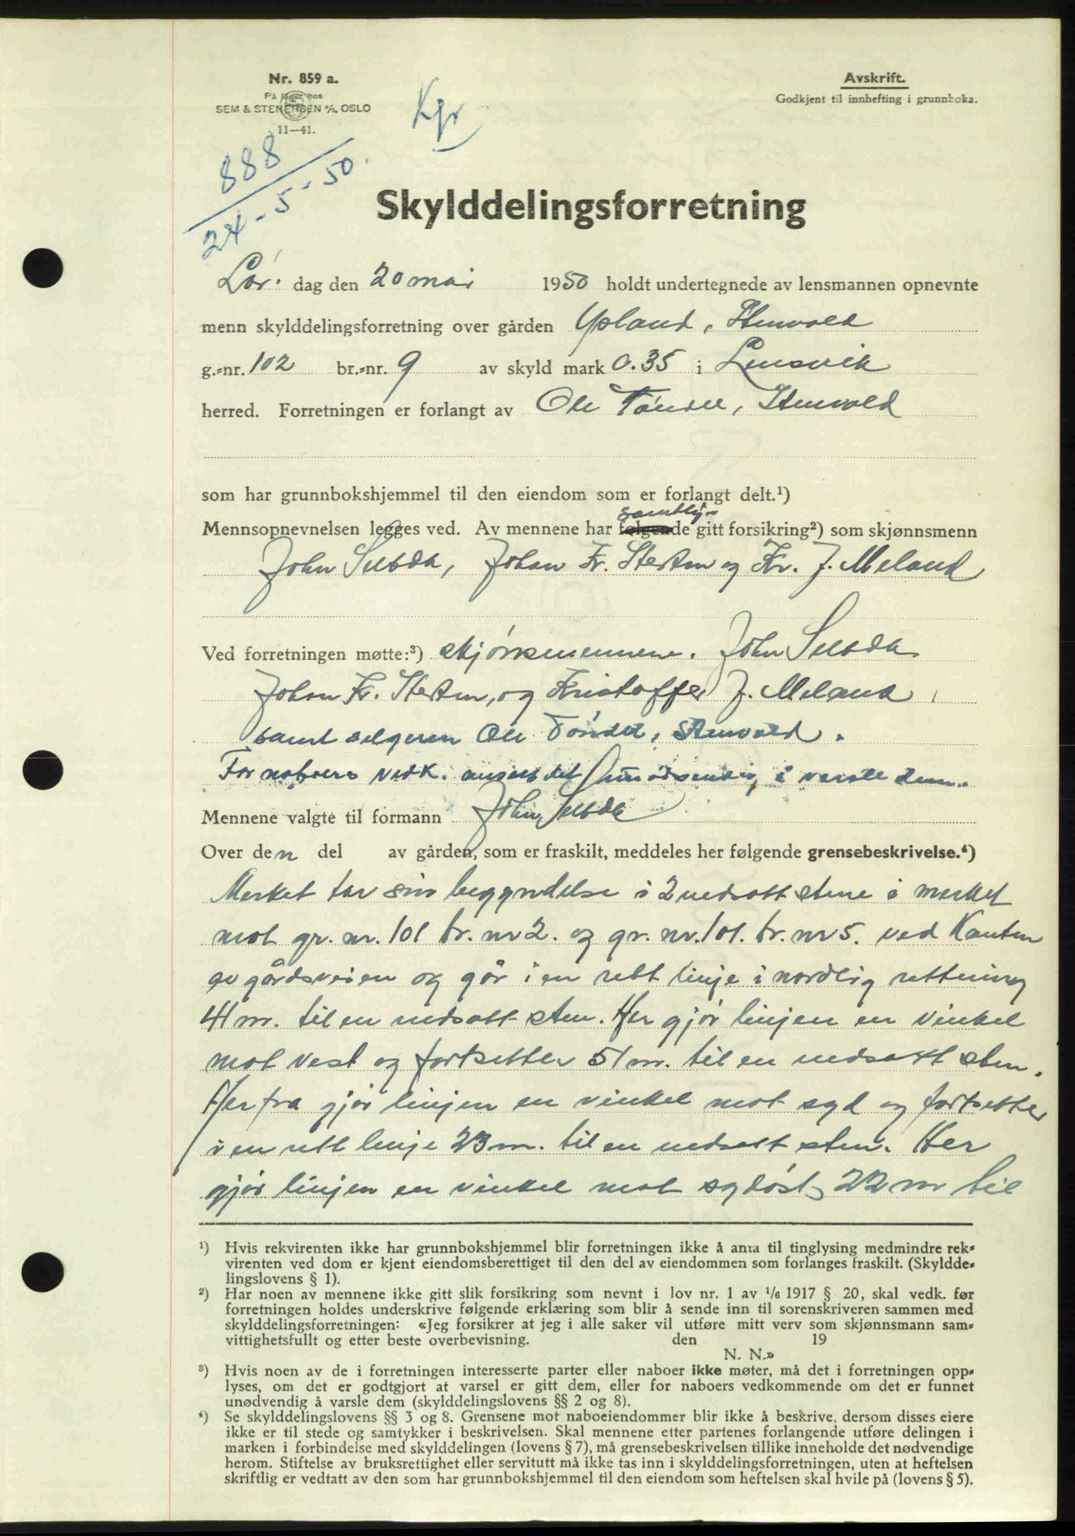 Nr. 859 a.
På lager hos
SEM & STENERSEN A/S, OSLO
11—41.
Kgr
Avskrift.
Godkjent til innhefting i grunnboka.
888
24-5-50.
Skylddelingsforretning
Lør. dag den 20 mai 1950 holdt undertegnede av lensmannen opnevnte
menn skylddelingsforretning over gården Ysland, Stenvold
g.-nr. 102 br.-nr. 9 av skyld mark 0.35 i Lensvik
herred. Forretningen er forlangt av Ole Tøndel, Stenvold
som har grunnbokshjemmel til den eiendom som er forlangt delt.¹)
samtlige
Mennsopnevnelsen legges ved. Av mennene har følgende gitt forsikring²) som skjønnsmenn
John Selbda, Johan Fr. Stenen og Kr. J. Meland
Ved forretningen møtte:³) skjønnsmennene. John Selbda
Johan Fr. Stenen, og Kristoffer J. Meland,
samt selgeren Ole Tøndel, Stenvold.
For naboers vedk. anses det unødvendig å varsle dem.
Mennene valgte til formann John Selbda
Over den del av gården, som er fraskilt, meddeles her følgende grensebeskrivelse.⁴)
Merket tar sin begyndelse i 2 nedsatt stene i merket
mot gr. nr. 101 br. nr 2. og gr. nr. 101. br. nr 5. ved Kanten
av gårdsveien og går i en rett linje i nordlig rettning
41 m. til en nedsatt sten. Her gjør linjen en vinkel
mot vest og fortsetter 51 m. til en nedsatt sten.
Her fra gjør linjen en vinkel mot syd og fortsetter
i en rett linje 23 m. til en nedsatt sten. Her
gjør linjen en vinkel mot sydøst, 22 m til
¹) Hvis rekvirenten ikke har grunnbokshjemmel blir forretningen ikke å anta til tinglysing medmindre rek-
virenten ved dom er kjent eiendomsberettiget til den del av eiendommen som forlanges fraskilt. (Skyldde-
lingslovens § 1).
²) Har noen av mennene ikke gitt slik forsikring som nevnt i lov nr. 1 av 1/6 1917 § 20, skal vedk. før
forretningen holdes underskrive følgende erklæring som blir å sende inn til sorenskriveren sammen med
skylddelingsforretningen: «Jeg forsikrer at jeg i alle saker vil utføre mitt verv som skjønnsmann sam-
vittighetsfullt og etter beste overbevisning. den 19
N. N.»
³) Hvis noen av de i forretningen interesserte parter eller naboer ikke møter, må det i forretningen opp-
lyses, om det er godtgjort at varsel er gitt dem, eller for naboers vedkommende om det er funnet
unødvendig å varsle dem (skylddelingslovens §§ 2 og 8).
⁴) Se skylddelingslovens §§ 3 og 8. Grensene mot naboeiendommer blir ikke å beskrive, dersom disses eiere
ikke er til stede og samtykker i beskrivelsen. Skal mennene etter partenes forlangende utføre delingen i
marken i forbindelse med skylddelingen (lovens § 7), må grensebeskrivelsen tillike inneholde det nødvendige
herom. Stiftelse av bruksrettighet eller servitutt må ikke tas inn i skylddelingsforretningen, uten at heftelsen
skriftlig er vedtatt av den som har grunnbokshjemmel til den eiendom som heftelsen skal hvile på (lovens § 5).